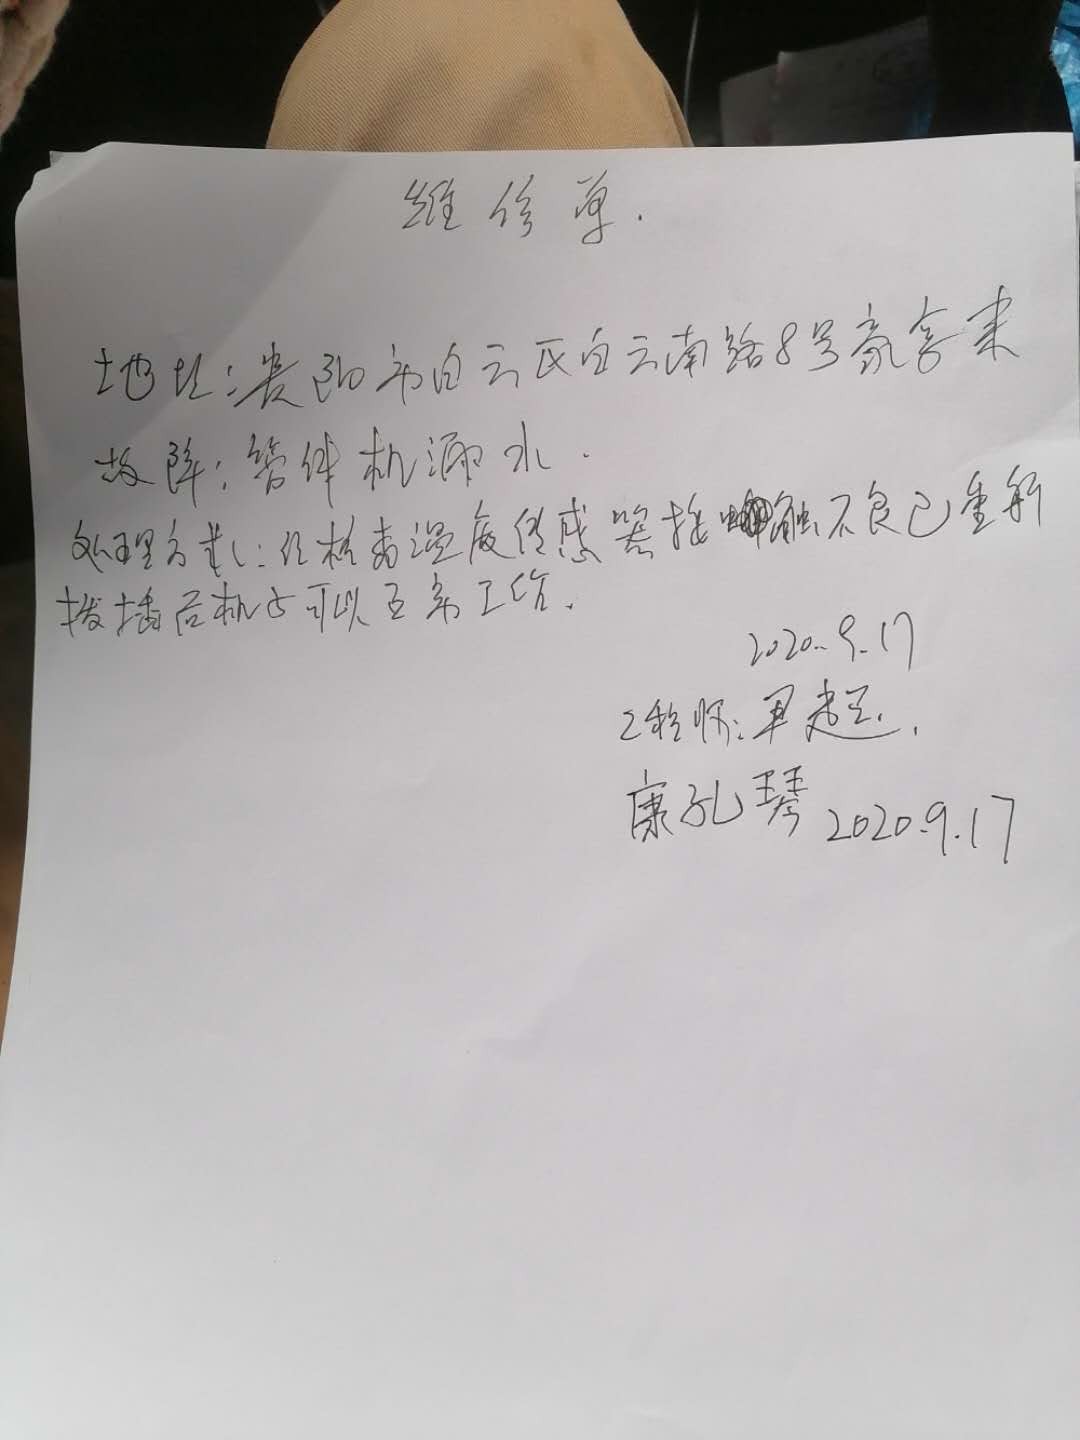 维修单.
地址：贵阳市白云区白云南路8号豪客来
故障：管伴机漏水.
处理方式：经检查温度传感器接触不良已重新
拨插后机子可以正常工作.
2020.9.17
工程师：覃超.
康孔琴 2020.9.17